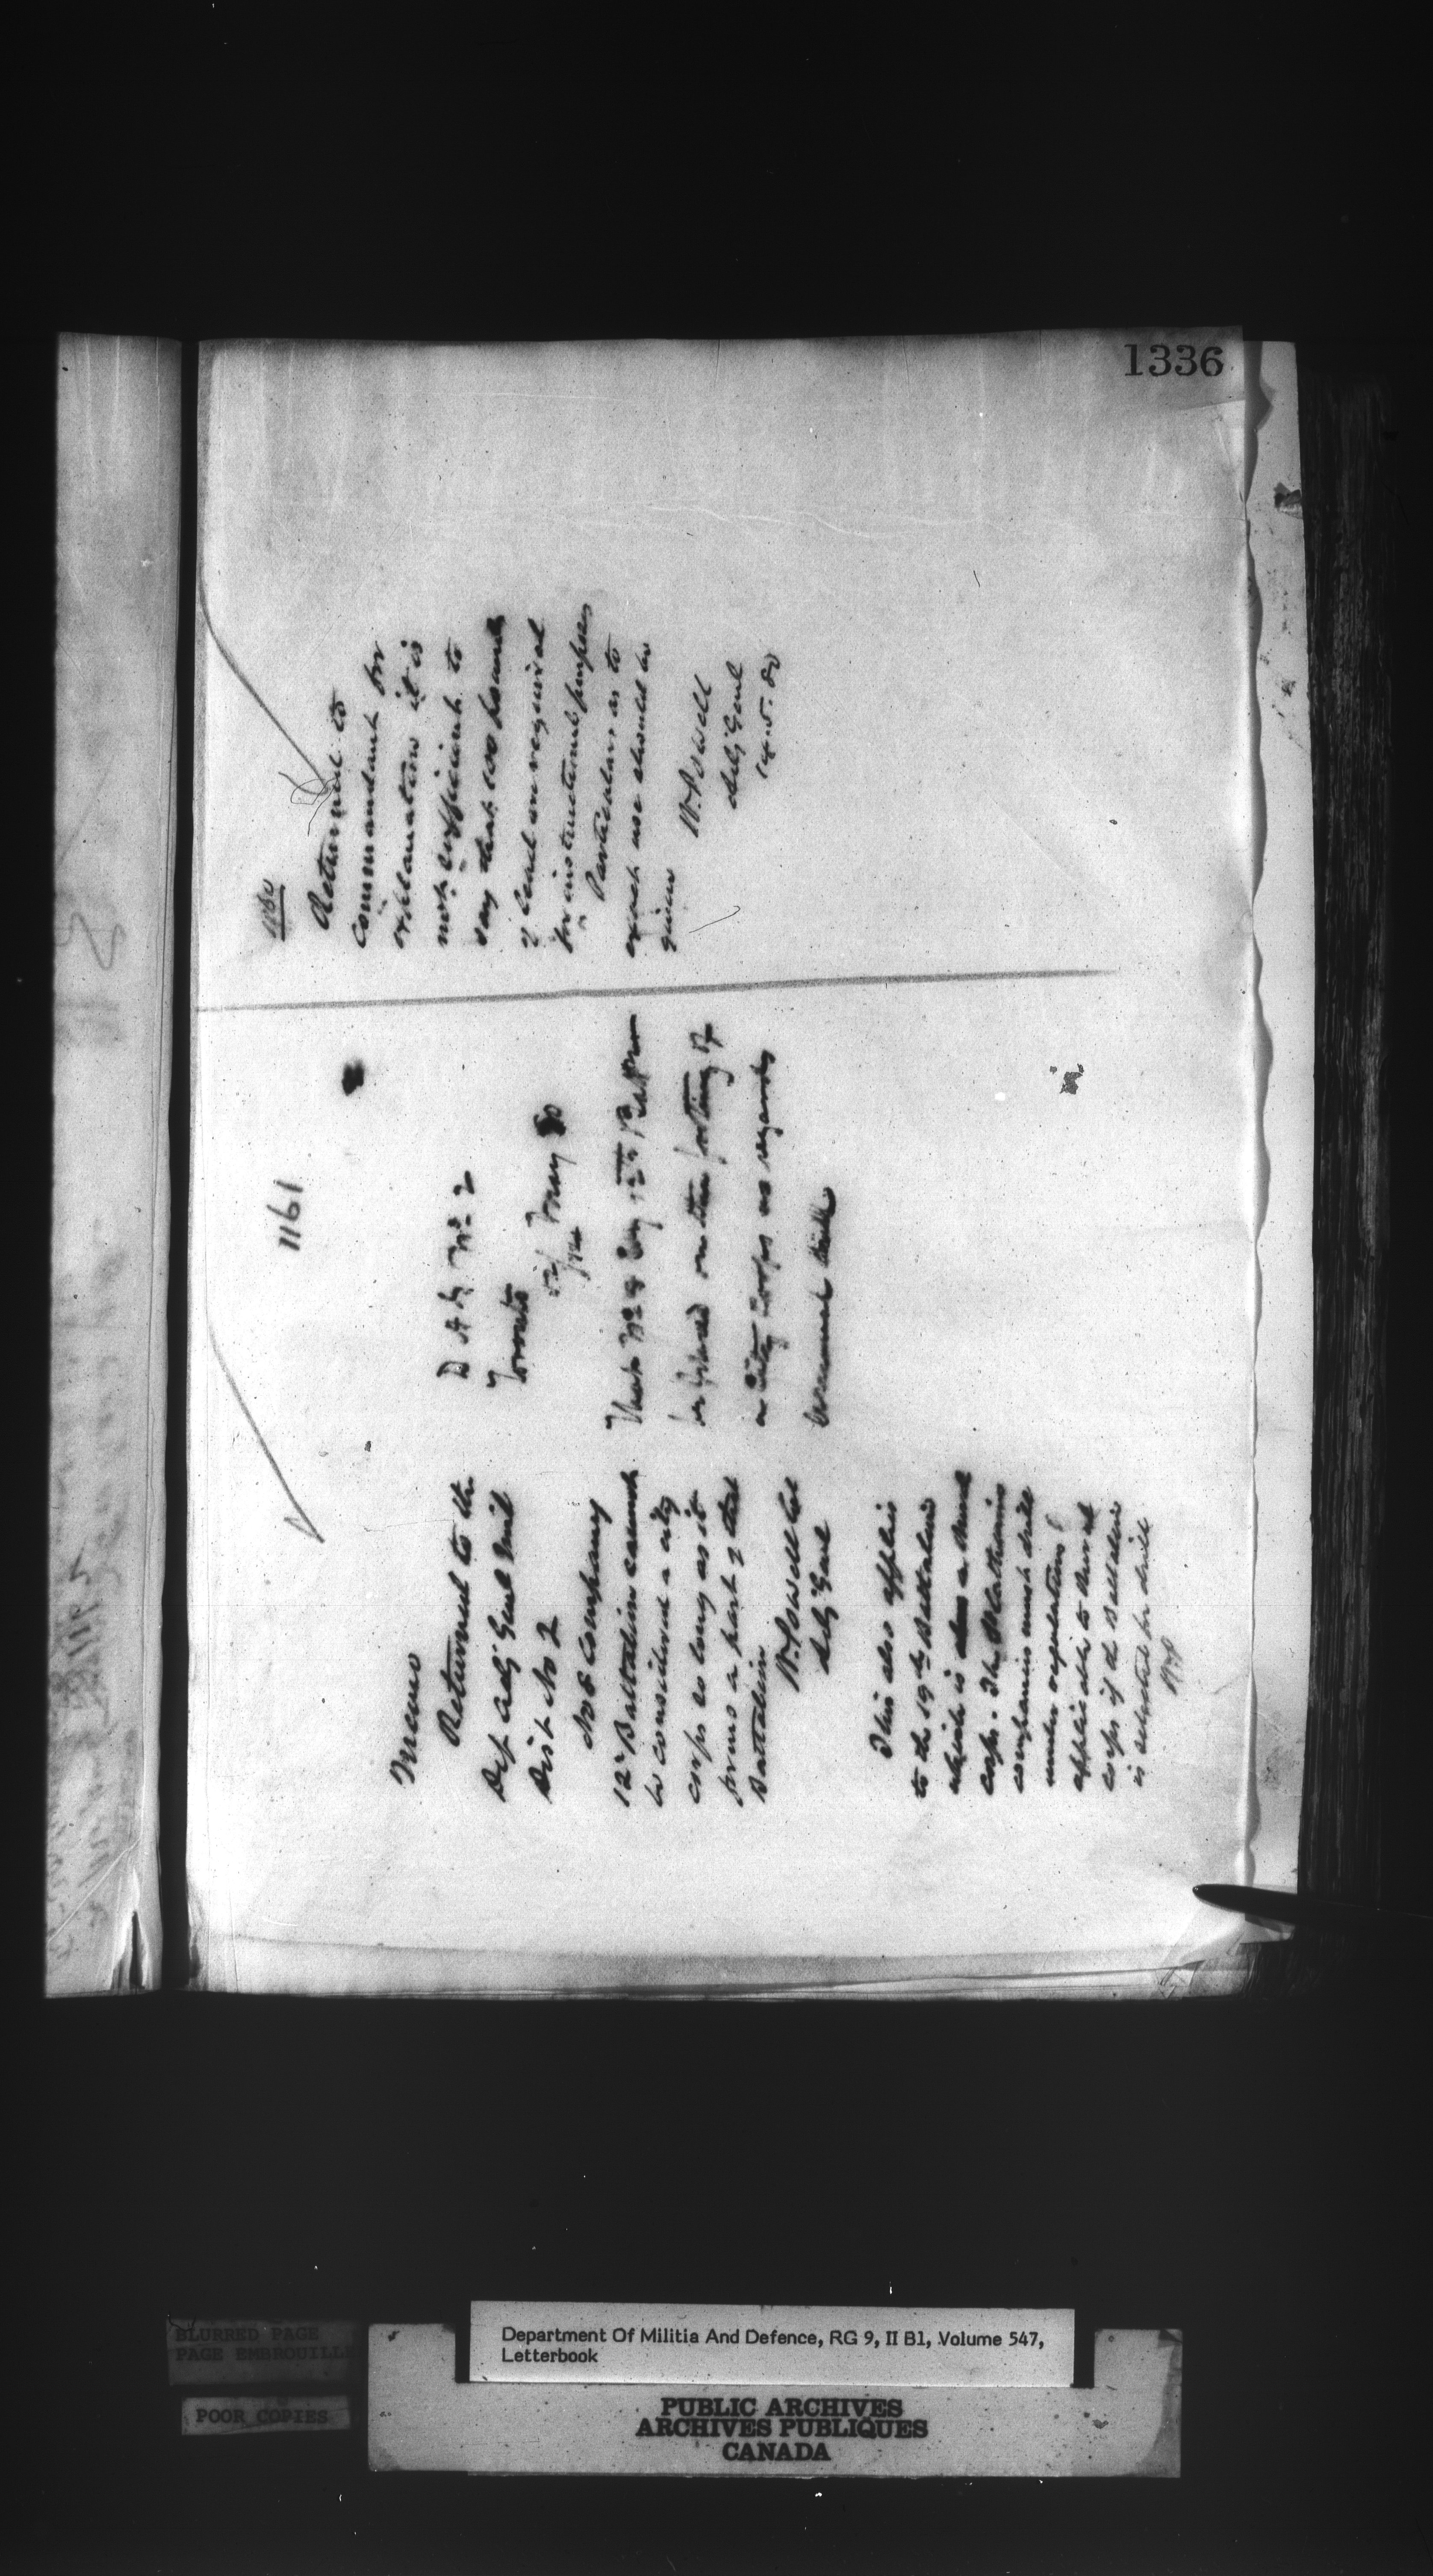 1336
1161
Memo
Returned to the
Dep Adj Genl Mil
Dist No 2
No 8 Company
12th Battalion cannot
be considered a city
corps so long as it
forms a part of that
Battalion
W. Powell Col
Adj Genl
This also applies
to the 19th Battalion
which is also a rural
corps. The St Catharines
companies must drill
under regulations
applicable to rural
corps if the Battalion
is selected for drill
WP
D A G No 2
Toronto
12/ May 80
That No 8 Coy 12th Battn
be placed on the footing of
a City Corps as regards
annual drill
1180
Returned to
Commandant for
explanation it is
not sufficient to
say that 100 pounds
of lead are required
for instructional purposes
Particulars as to
exact use should be
given
W. Powell
Adj Genl
14.5.80
BLURRED PAGE
PAGE EMBROUILLE
POOR COPIES
Department Of Militia And Defence, RG 9, II B1, Volume 547,
Letterbook
PUBLIC ARCHIVES
ARCHIVES PUBLIQUES
CANADA